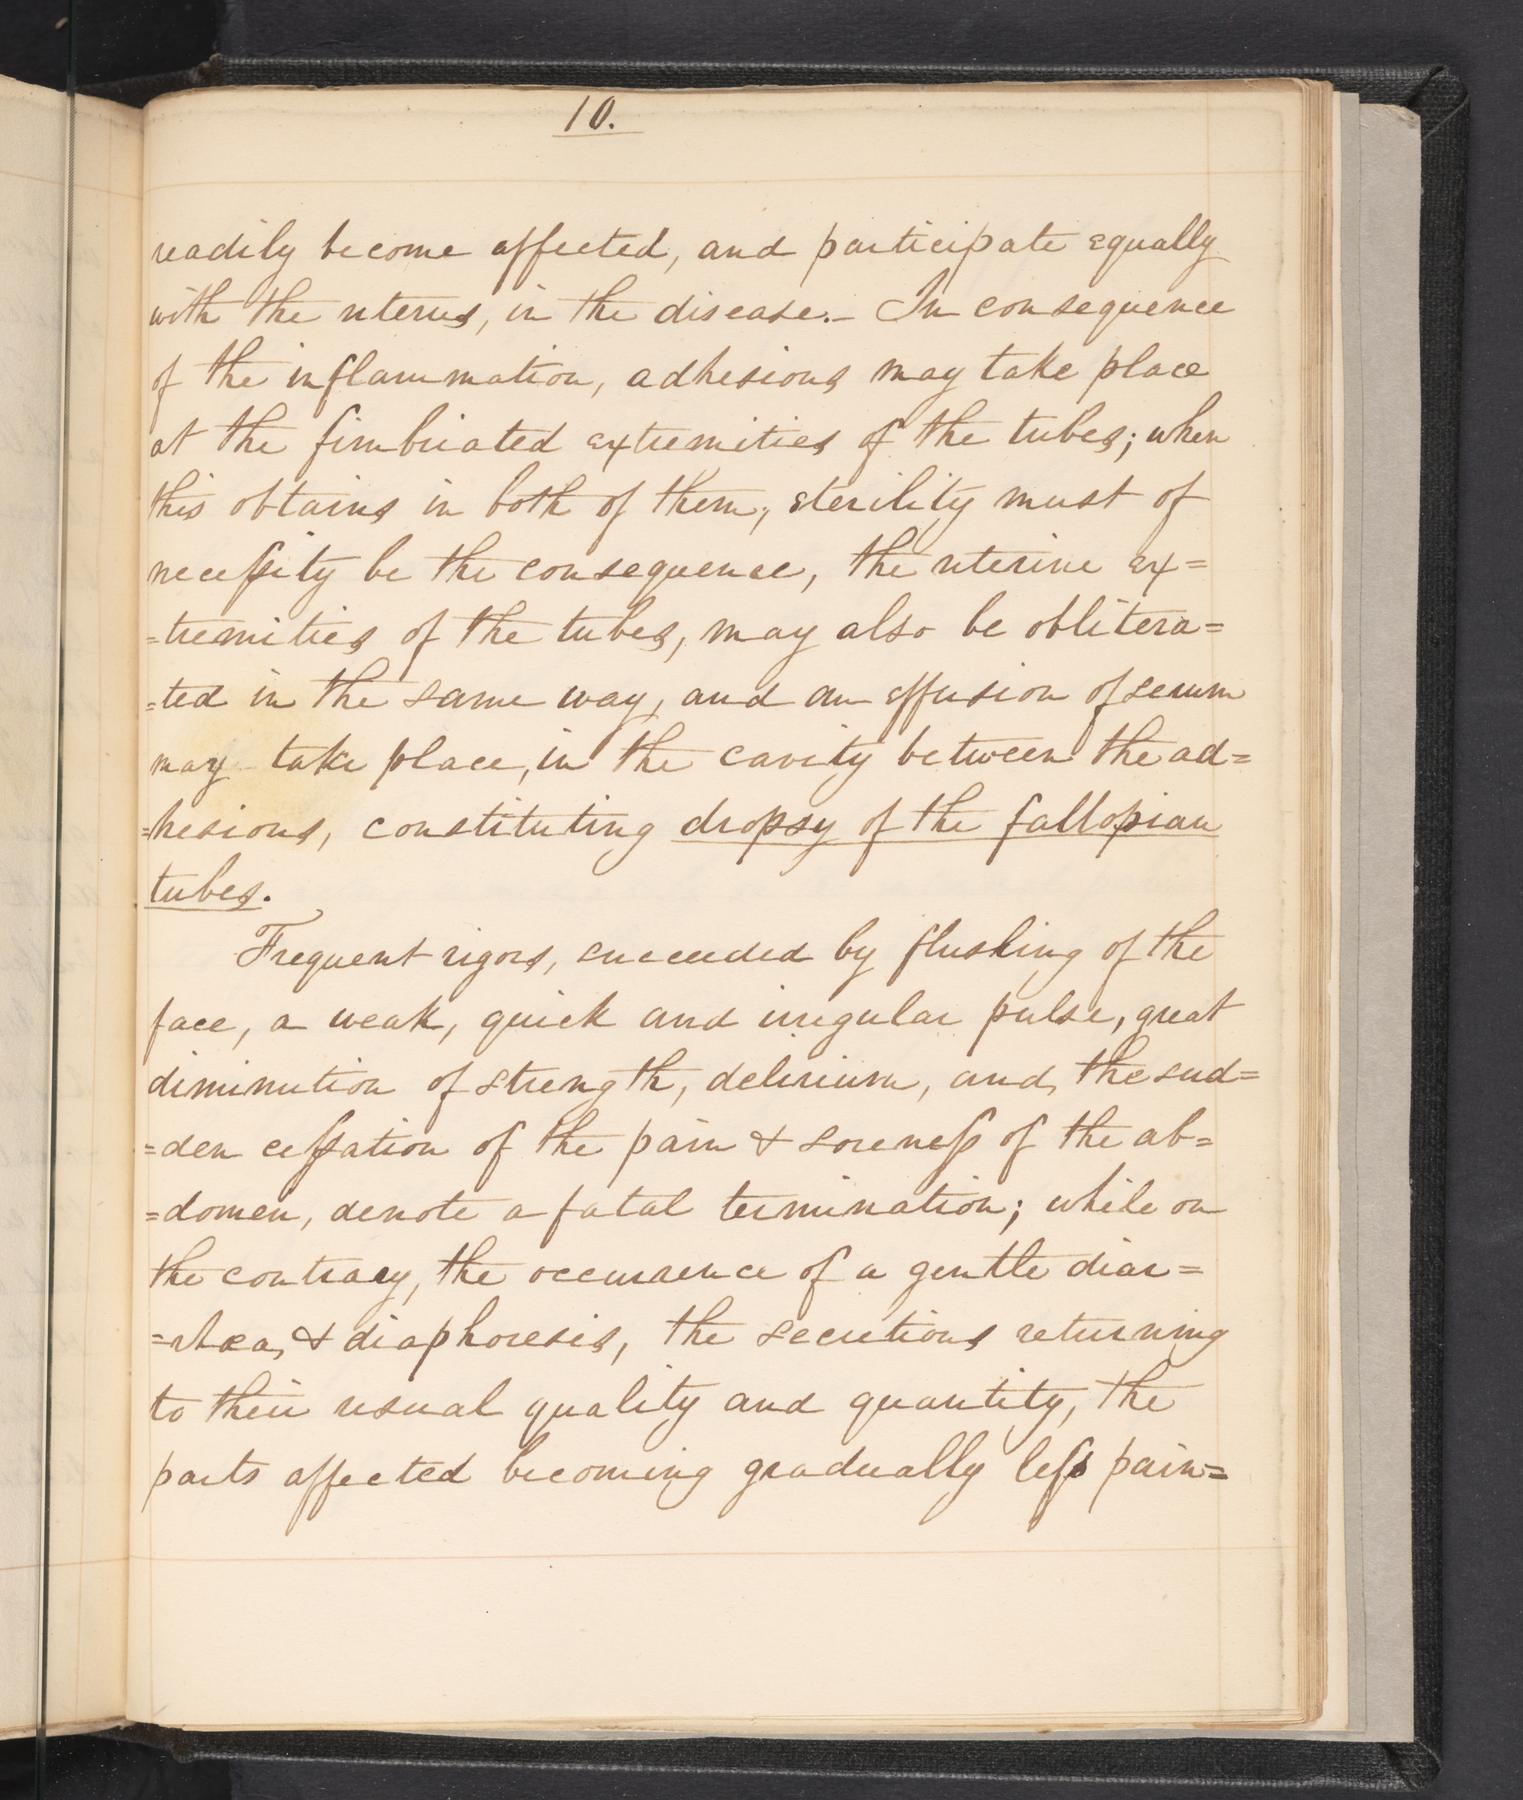 10.
readily become affected, and participate equally
with the uterus, in the disease.– In consequence
of the inflammation, adhesions may take place
at the fimbriated extremities of the tubes; when
this obtains in both of them, sterility must of
neceſsity be the consequence, the uterine ex=
=tremities of the tubes, may also be oblitera=
=ted in the same way, and an effusion of serum
may take place, in the cavity between the ad=
=hesions, constituting dropsy of the fallopian
tubes.
Frequent rigors, succeeded by flushing of the
face, a weak, quick and irregular pulse, great
diminution of strength, delirium, and, the sud=
=den ceſsation of the pain & soreneſs of the ab=
=domen, denote a fatal termination; while on
the contrary, the occurrence of a gentle diar=
=rhœa, & diaphoresis, the secretions returning
to their usual quality and quantity, the
parts affected becoming gradually leſs pain=